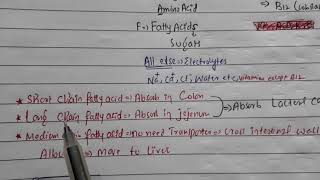 Amino Acid
F → Fatty Acids
Sugars
All else → Electrolytes
Na⁺, Ca⁺, Cl, Water etc, vitamins except B12
B12 (
★ Short chain fatty acid → Absorb in Colon
★ Long Chain fatty acid → Absorb in jejenum
⇒ Absorb Lacteal Ca
★ Medium fatty acid → no need Transporter → Cross intestinal wall
Albu → move to liver